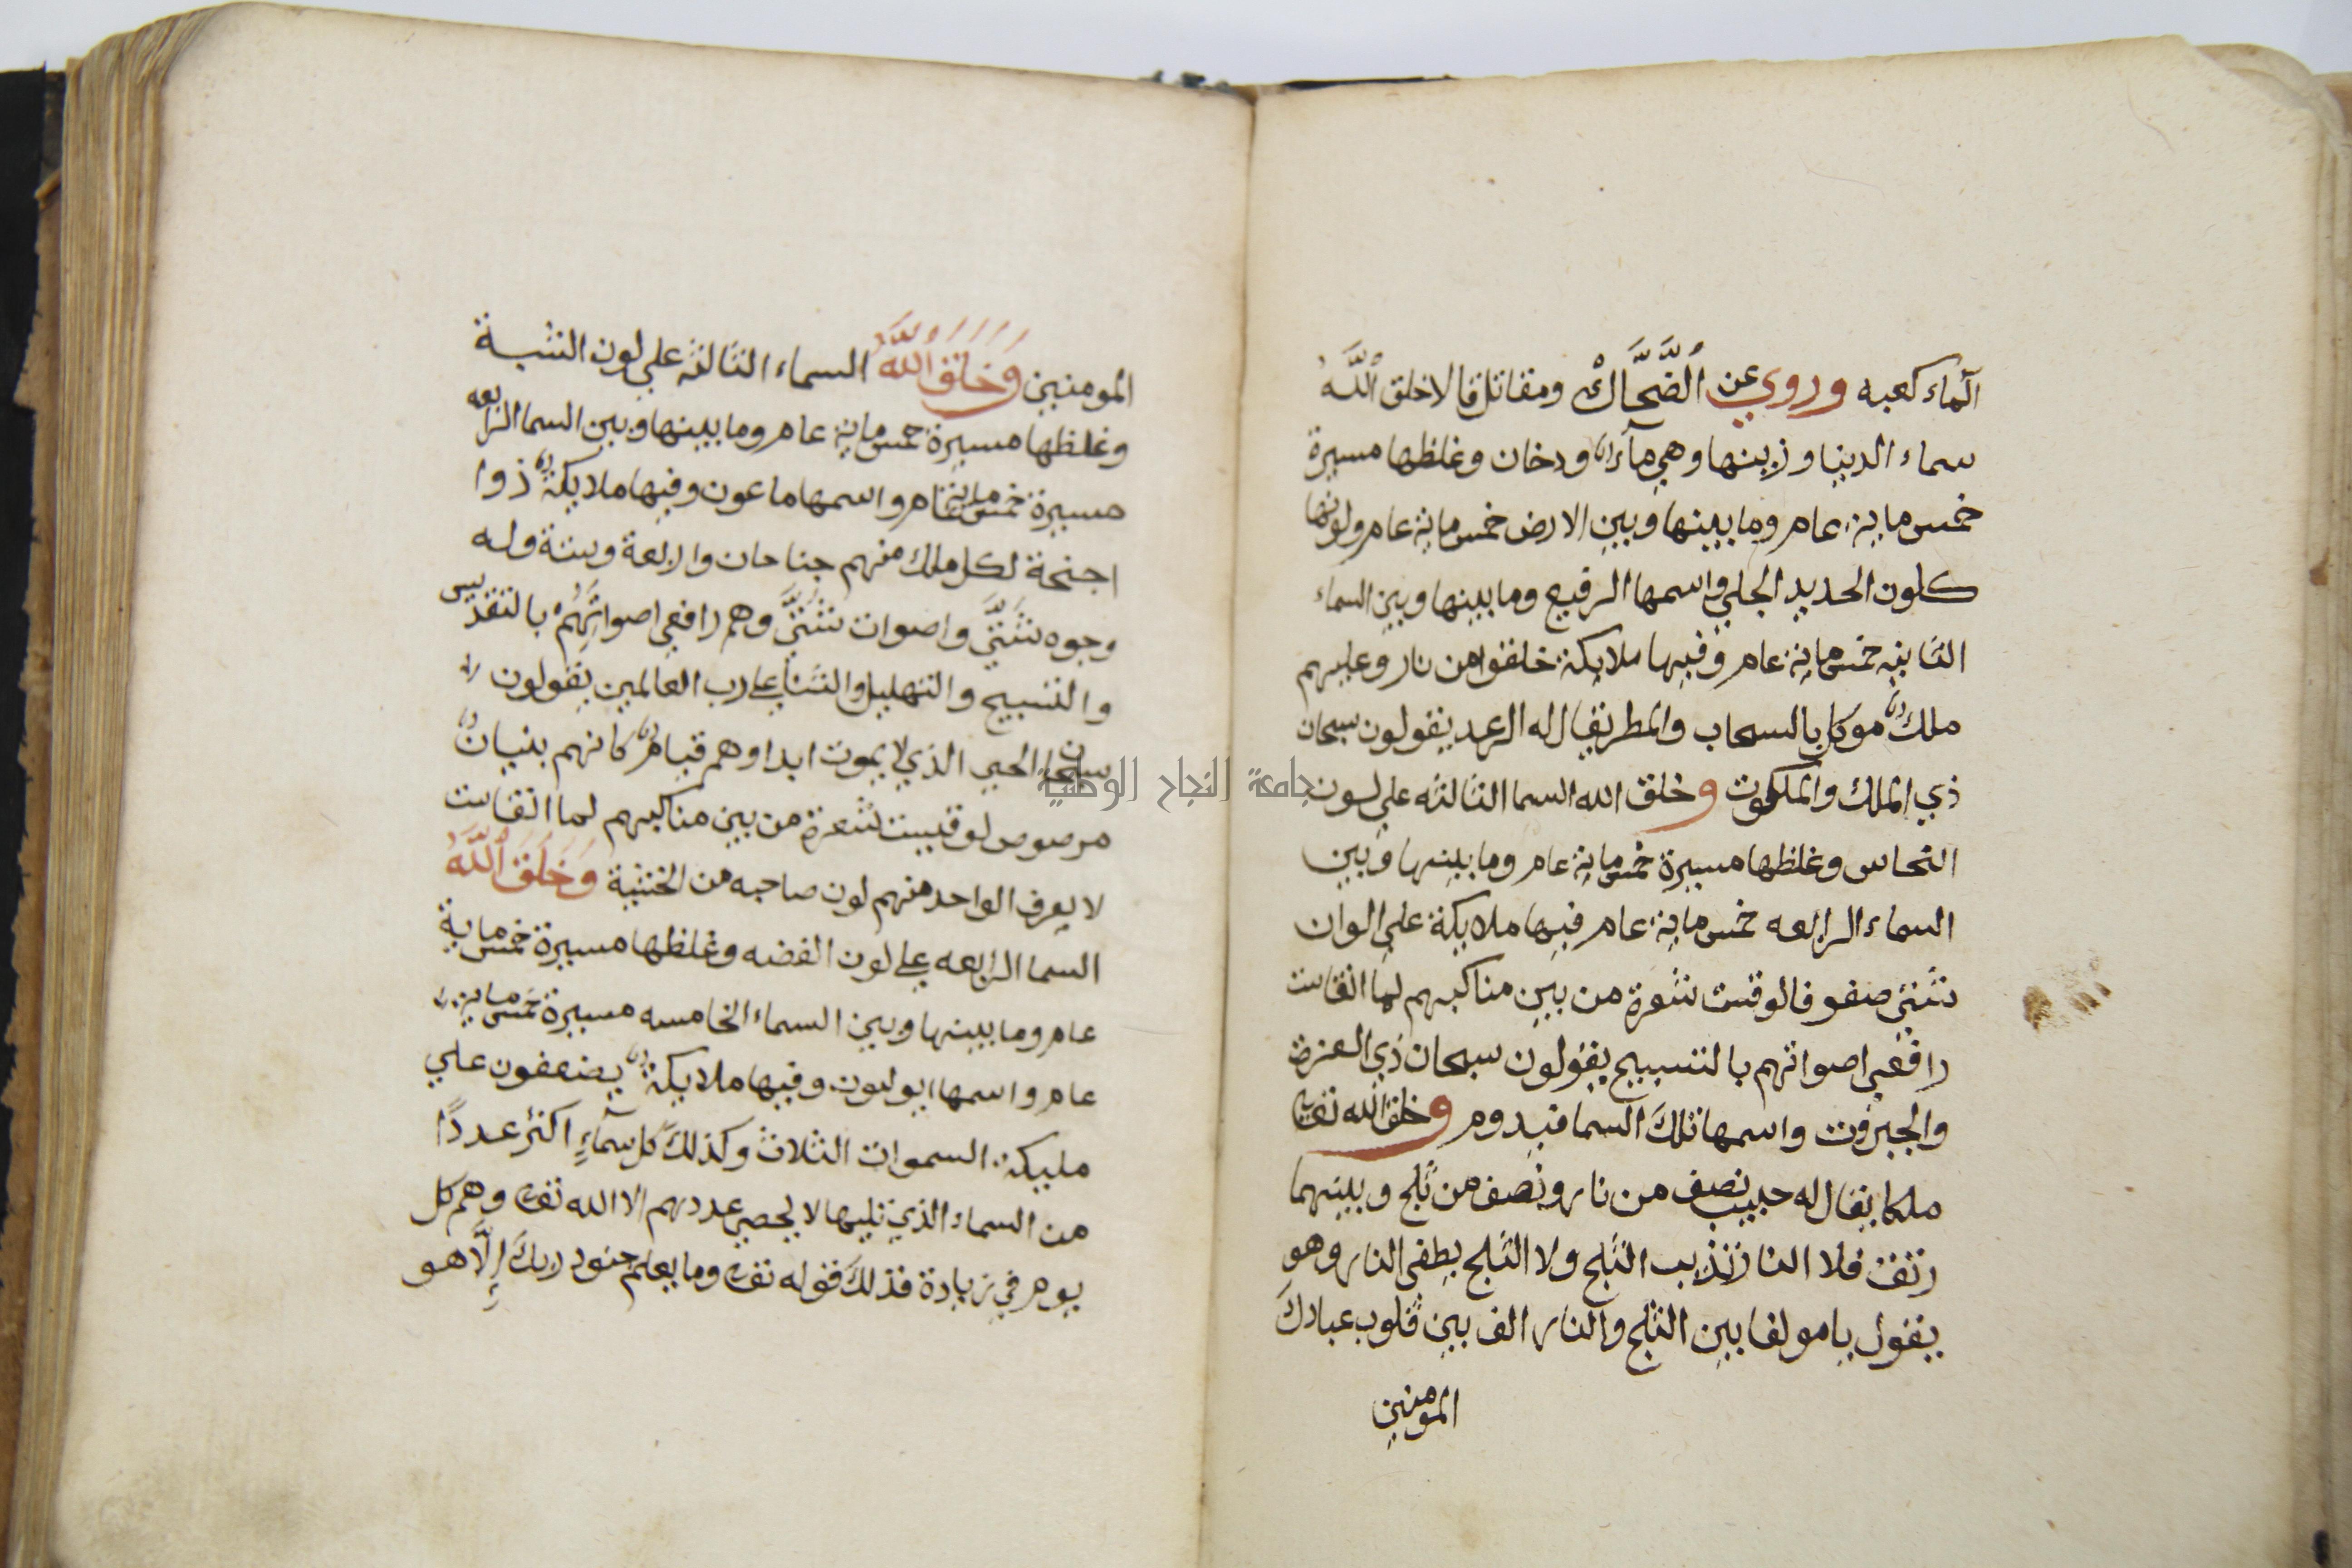 الماء كعبه وروي عن الضَّحَّاكْ ومقاتل قالا خلق اللَّهُ
سماء الدينا وزينها وهي ماءٌ ودخان وغلظها مسيرة
خمس ماية عام وما بينها وبين الارض خمس ماية عام ولونها
كلون الحديد المجلي واسمها الرفيع وما بينها وبين السماء
الثانيه خمس ماية عام وفيها ملايكة خلقوا من نار وعليهم
ملكٌ موكل بالسحاب والمطر يقال له الرعد يقولون سبحان
ذي الملك والملكوت وخلق الله السما الثالثه علي لون
النحاس وغلظها مسيرة خمس ماية عام وما بينها وبين
السماء الرابعه خمس ماية عام فيها ملايكة علي الوان
شتى صفوفا لوقست شعرة من بين مناكبهم لما انقاست
رافعي اصواتهم بالتسبيح يقولون سبحان ذي العزة
والجبروت واسمها تلكَ السما قيدوم وخلق الله تعالى
ملكا يقال له حبيب نصف من نار ونصف من ثلج وبينهما
رتق فلا النار تذيب الثلج ولا الثلج يطفى النار وهو
يقول يا مولفا بين الثلج والنار الف بين قلوب عبادكَ
المومنين
المومنين وَخَلَقَ اللَّهُ السماء الثالثة علي لون الشبة
وغلظها مسيرة خمس ماية عام وما بينها وبين السما الرابعه
مسيرة خمس ماية عام واسمها ماعون وفيها ملايكةٌ ذوا
اجنحة لكل ملك منهم جناحان واربعة وستة وله
وجوه شَتَّيَ واصوات شَتَّيَ وهم رافعي اصواتِهُمْ بالتقديس
والتسبيح والتهليل والثنا علي رب العالمين يقولون
سبحان الحيي الذي لا يموت ابدا وهم قيامٌ كانهم بنيانٌ
مرصوص لو قيست شعرة من بين مناكبهم لما انقاست
لا يعرف الواحد منهم لون صاحبه من الخشية وَخَلَقَ اللَّهُ
السما الرابعه علي لون الفضه وغلظها مسيرة خمس ماية
عام وما بينها وبين السماء الخامسه مسيرة خمس ماية
عام واسمها ايولون وفيها ملايكةٌ يضعفون علي
مليكة السموات الثلاث وكذلكَ كل سمآءٍ اكثر عددًا
من السماء الذي تليها لا يحصي عددهم الا الله تعالى وهم كل
يوم في زيادة فذلكَ قوله تعالى وما يعلم جنود ربكَ إِلَّا هو
جامعة النجاح الوطنية